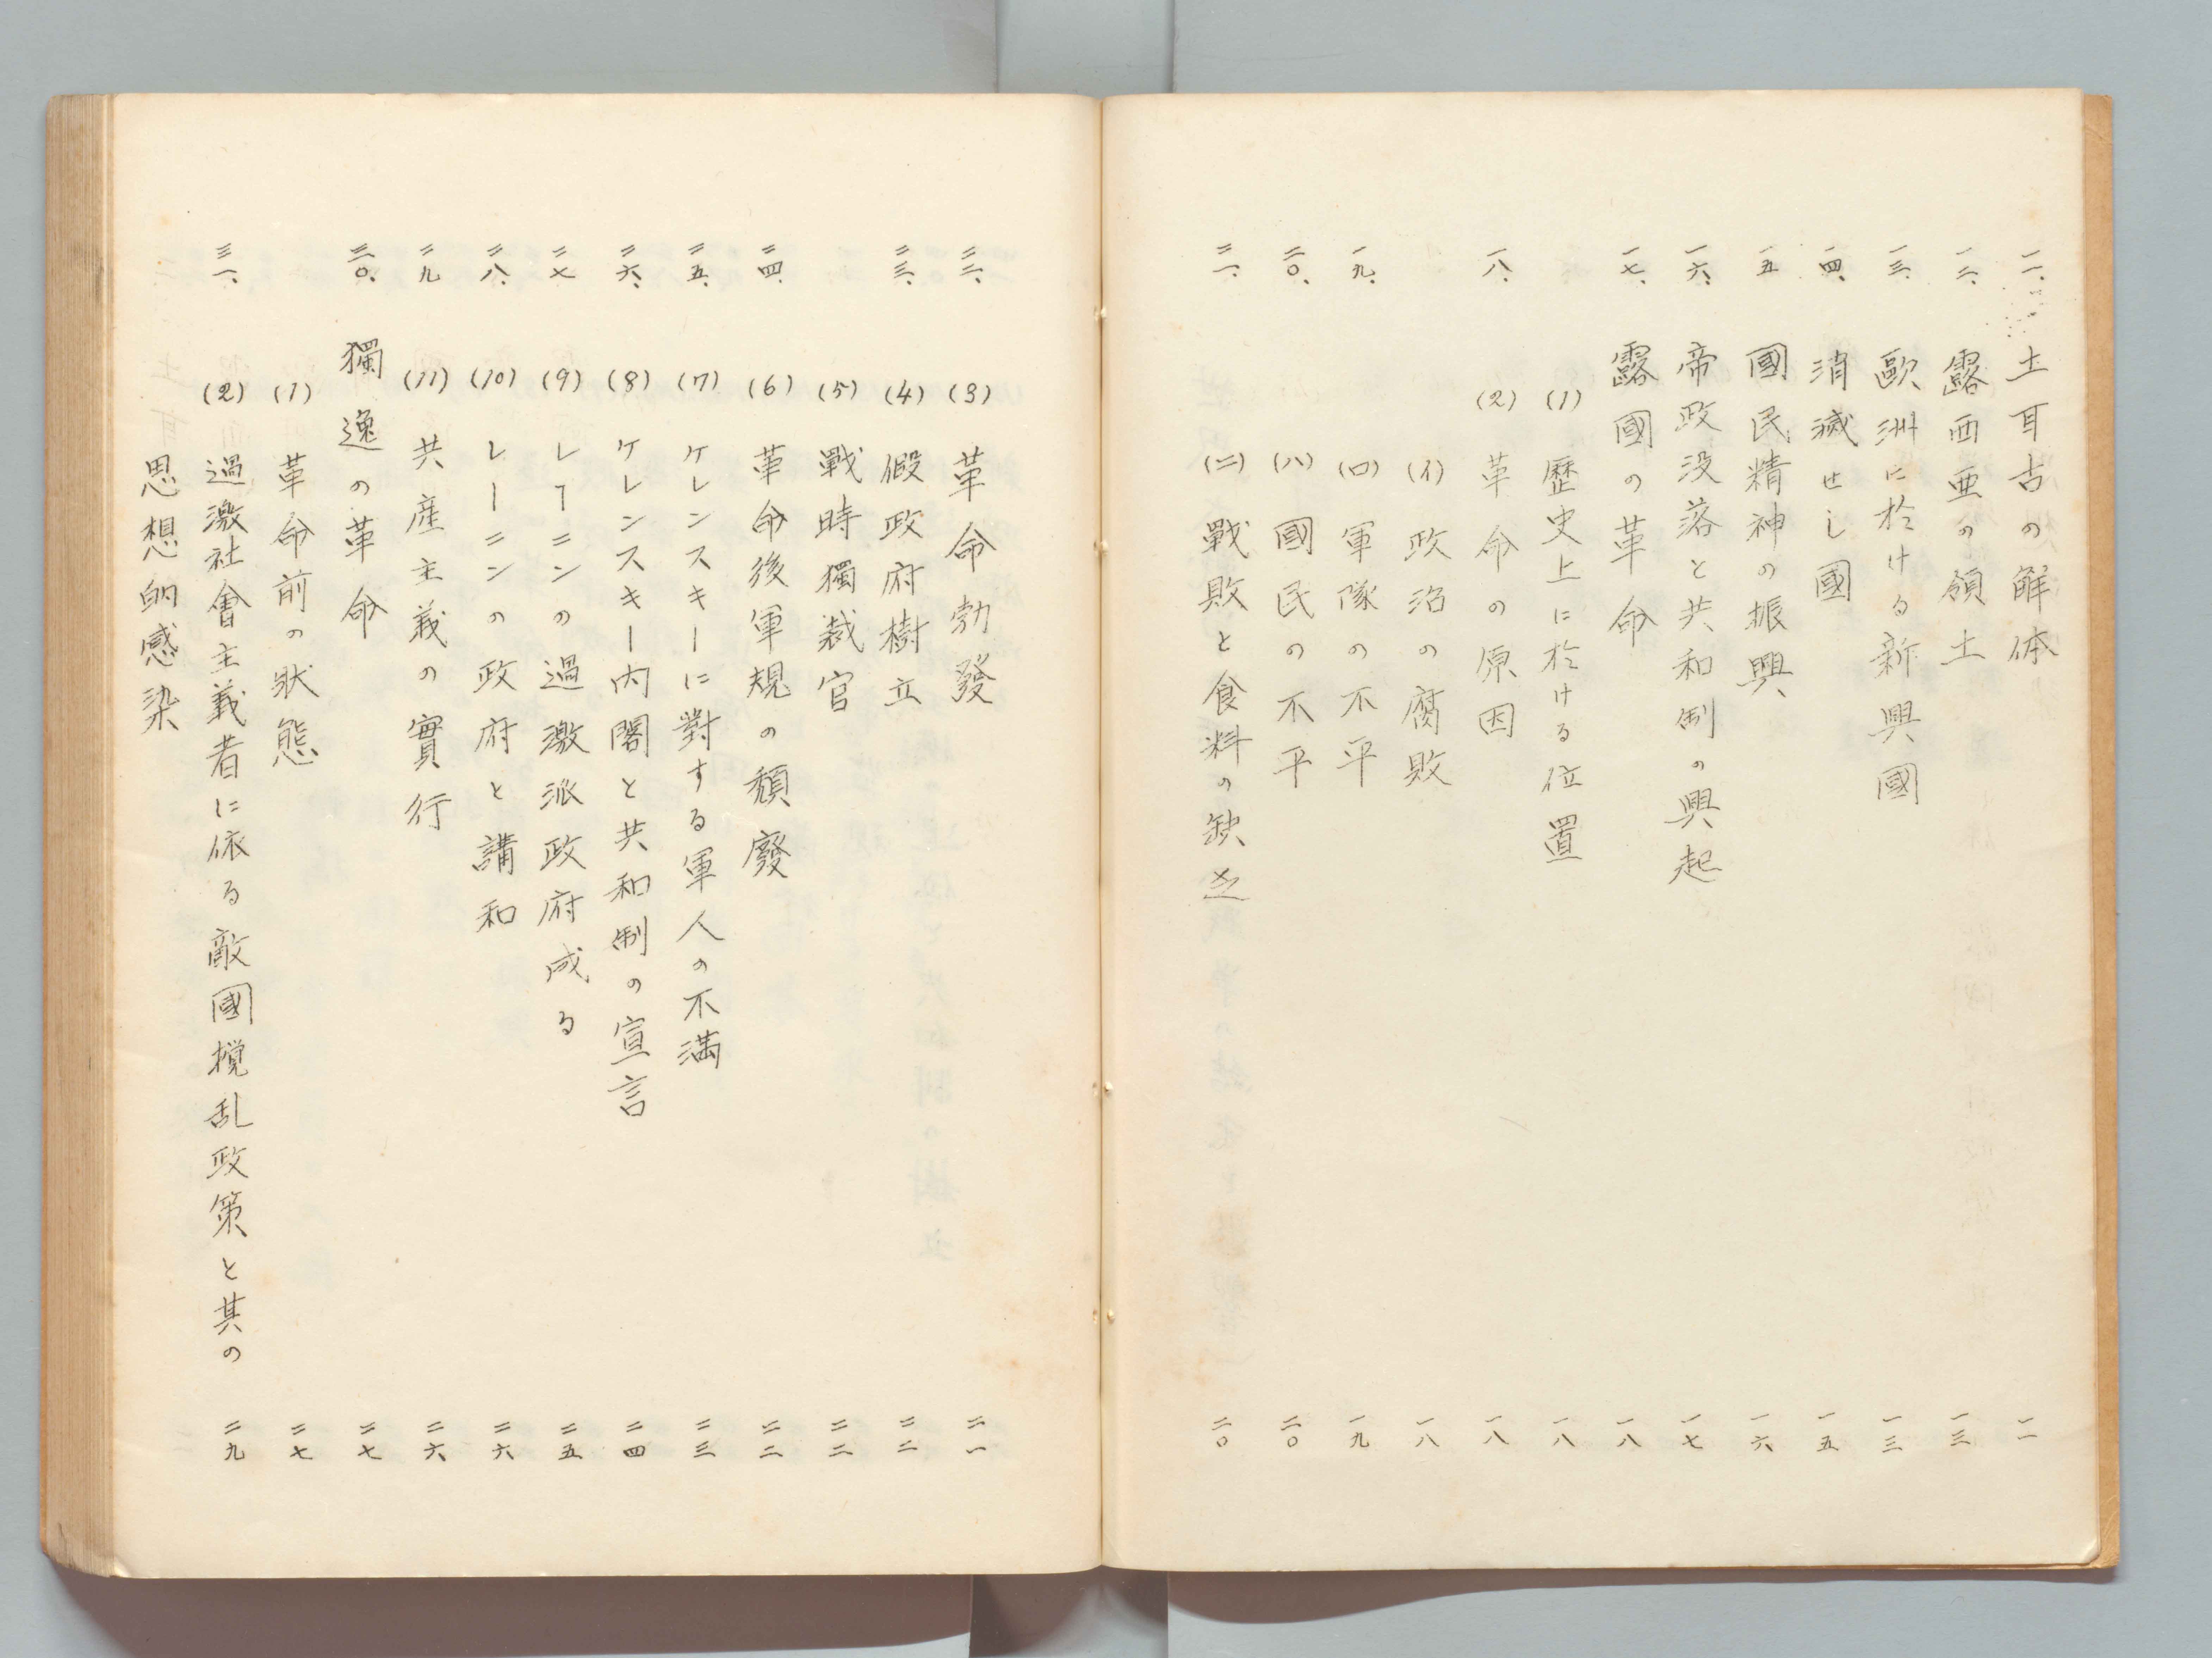 一一、土耳古の解体 一一
一二、露西亜の領土 一三
一三、歐洲に於ける新興國 一三
一四、消滅せし國 一五
一五 國民精神の振興 一六
一六、帝政没落と共和制の興起 一七
一七、露國の革命 一八
(1) 歴史上に於ける位置 一八
一八、(2) 革命の原因 一八
(イ) 政治の腐敗 一八
一九、(ロ) 軍隊の不平 一九
二〇、(ハ) 國民の不平 二〇
二一、(ニ) 戰敗と食料の缺乏 二〇
二二、(3) 革命勃發 二一
二三、(4) 假政府樹立 二二
(5) 戰時獨裁官 二二
二四、(6) 革命後軍規の頽廢 二二
二五、(7) ケレンスキーに對する軍人の不満 二三
二六、(8) ケレンスキー内閣と共和制の宣言 二四
二七 (9) レーニンの過激派政府成る 二五
二八、(10) レーニンの政府と講和 二六
二九 (11) 共産主義の實行 二六
三〇、獨逸の革命 二七
(1) 革命前の狀態 二七
三一、(2) 過激社會主義者に依る敵國攪乱政策と其の 二九
思想的感染